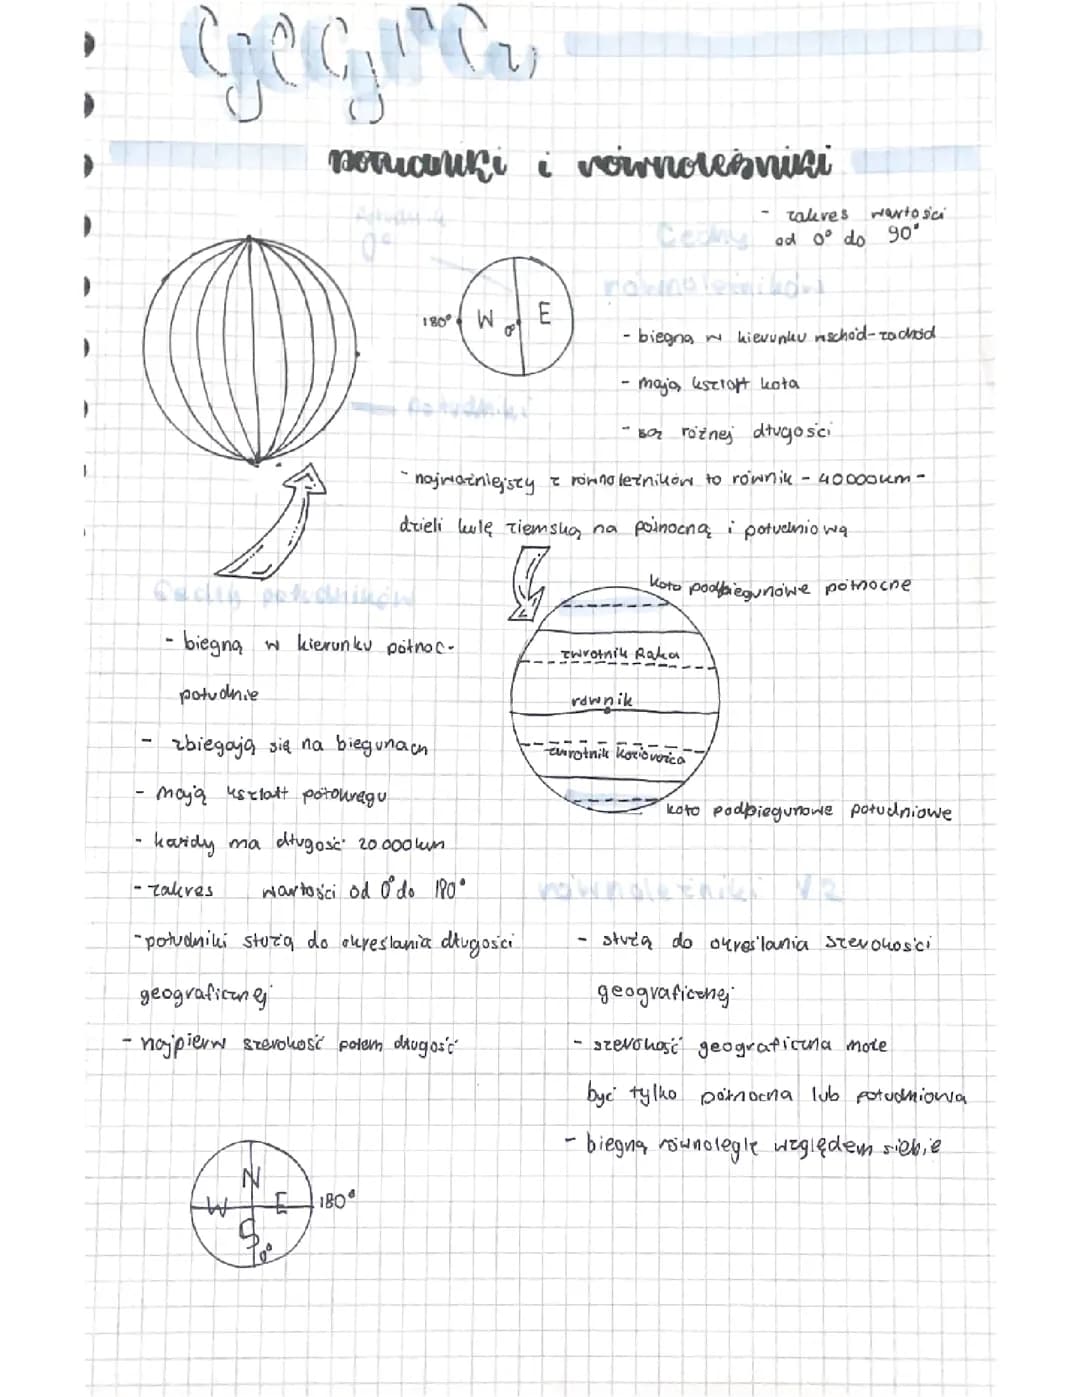 południki i równoleżniki
- zakres wartości
od 0° do 90°
Cechy
równoleżników
0°
180° W 0° E
- biegną w kierunku wschód-zachód
- mają kształt koła
południki
- są różnej długości
- najważniejszy z równoleżników to równik - 40000km -
dzieli kulę ziemską na północną i południową
koło podbiegunowe północne
Cechy południków
- biegną w kierunku północ-
południe
zwrotnik Raka
równik
- zbiegają się na biegunach
zwrotnik Koziorożca
- mają kształt półokręgu
koło podbiegunowe południowe
- każdy ma długość 20 000 km
- zakres wartości od 0° do 180°
równoleżniki V2
- południki służą do określania długości
geograficznej
- służą do określania szerokości
geograficznej
- najpierw szerokość potem długość
- szerokość geograficzna może
być tylko północna lub południowa
- biegną równolegle względem siebie
N
W E 180°
S
0°